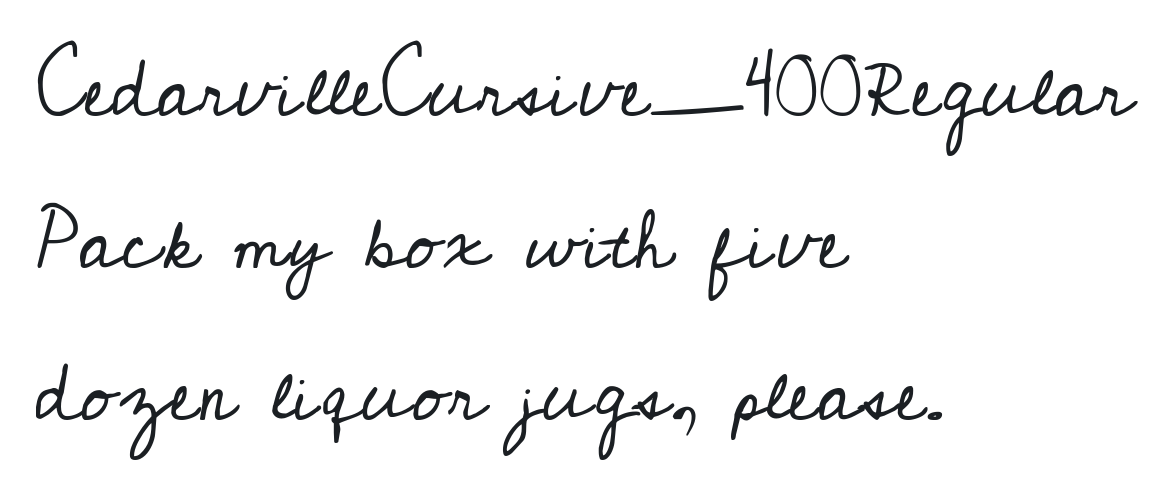 CedarvilleCursive_400Regular
Pack my box with five
dozen liquor jugs, please.